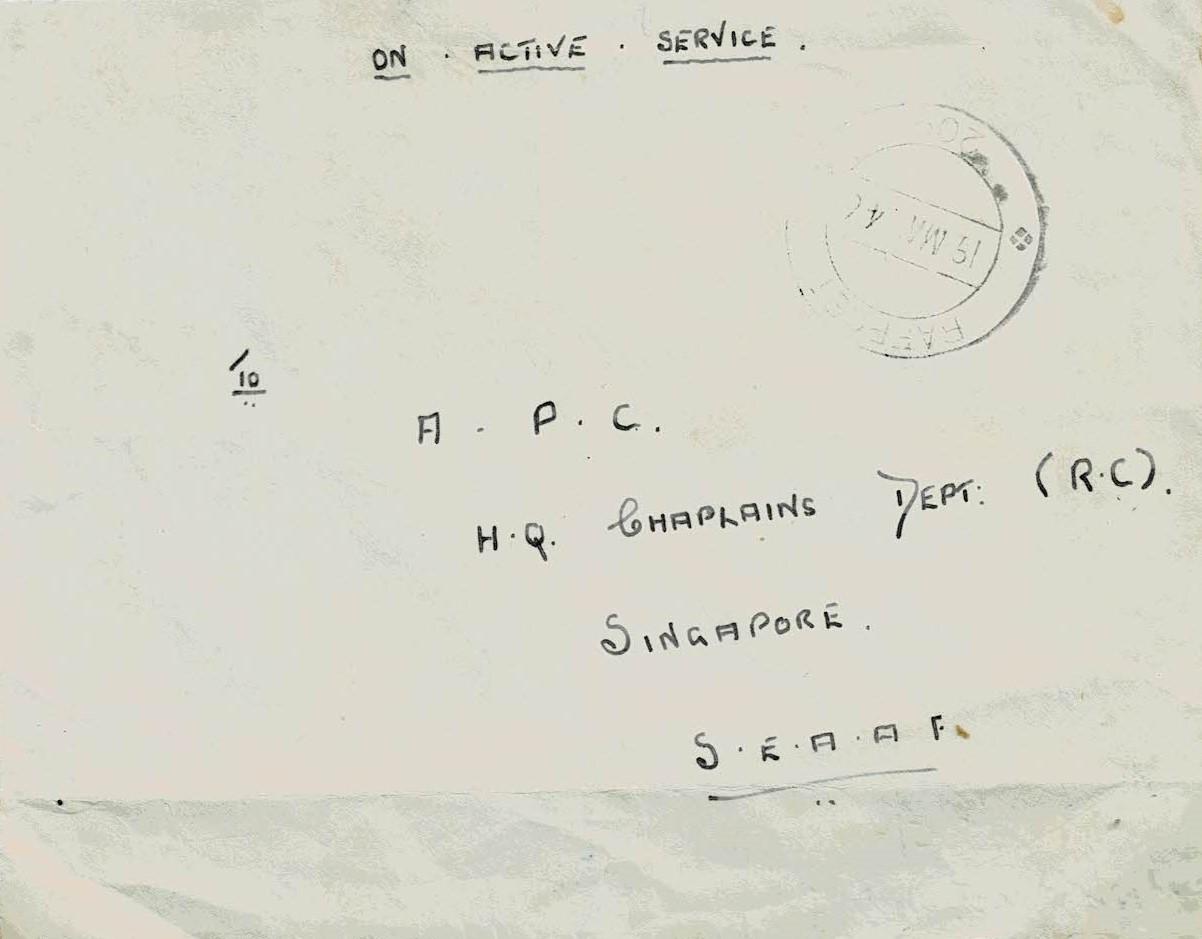 ON . ACTIVE . SERVICE .
19 MA
/10
A . P . C .
H.Q. CHAPLAINS DEPT: (R.C).
SINGAPORE .
S . E . A . A F.